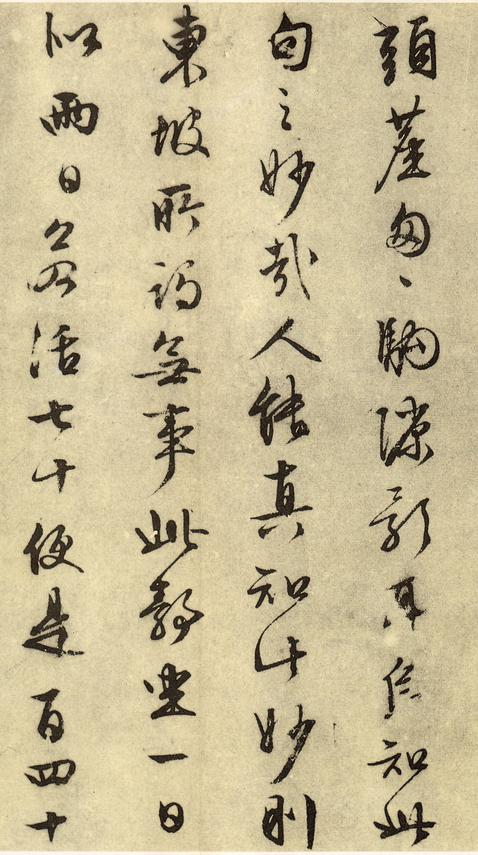 頭塵匆〻駒隙影耳信知此
句之妙哉人能真知此妙則
東坡所謂無事此靜坐一日
似兩日若活七十便是百四十